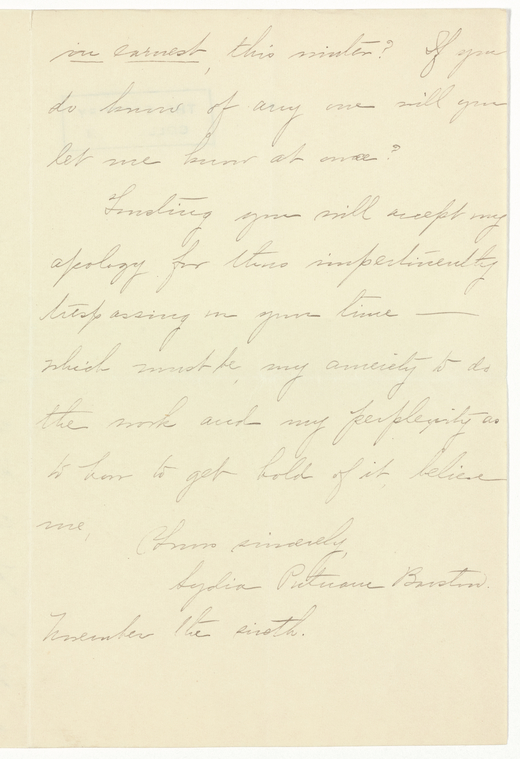 in earnest, this winter? If you
do know of any one will you
let me know at once?
Trusting you will accept my
apology for thus impertinently
trespassing on your time —
which must be, my anxiety to do
the work and my perplexity as
to how to get hold of it, believe
me,
Yours sincerely,
Lydia Putnam
November the sixth.